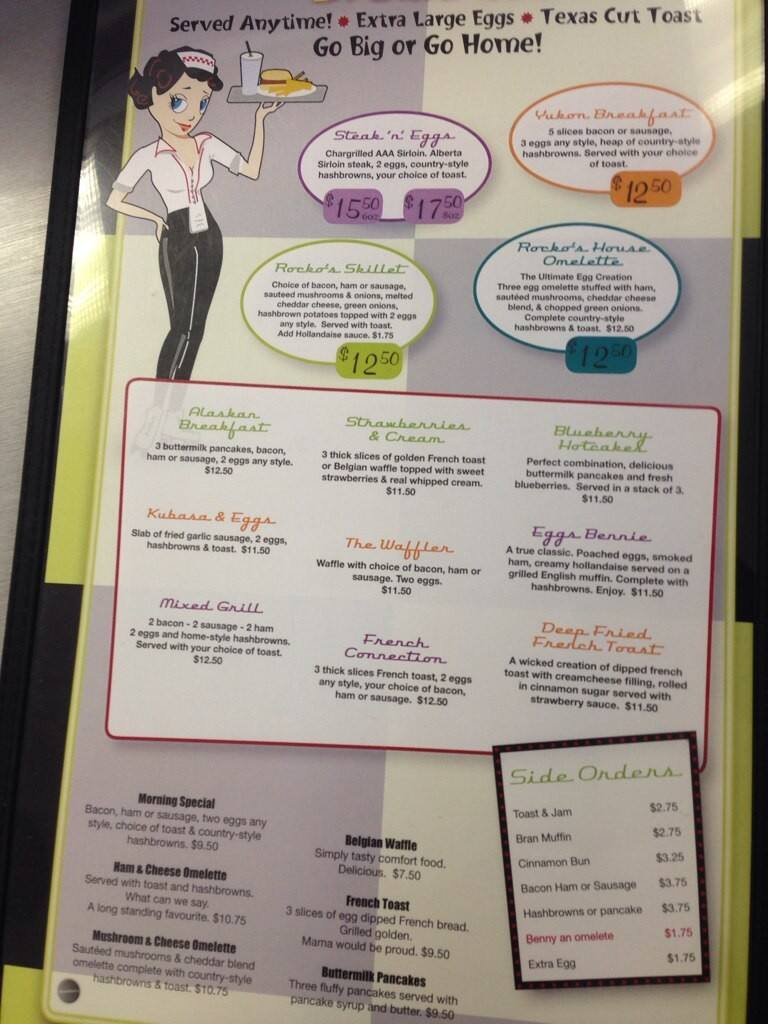 Served Anytime! * Extra Large Eggs * Texas Cut Toast
Go Big or Go Home!
Steak 'n' Eggs
Chargrilled AAA Sirloin. Alberta
Sirloin steak, 2 eggs, country-style
hashbrowns, your choice of toast.
$15.50 6oz $17.50 8oz
Yukon Breakfast
5 slices bacon or sausage,
3 eggs any style, heap of country-style
hashbrowns. Served with your choice
of toast.
$12.50
Rocko's Skillet
Choice of bacon, ham or sausage,
sautéed mushrooms & onions, melted
cheddar cheese, green onions,
hashbrown potatoes topped with 2 eggs
any style. Served with toast.
Add Hollandaise sauce. $1.75
$12.50
Rocko's House
Omelette
The Ultimate Egg Creation
Three egg omelette stuffed with ham,
sautéed mushrooms, cheddar cheese
blend, & chopped green onions.
Complete country-style
hashbrowns & toast. $12.50
$12.50
Alaskan
Breakfast
3 buttermilk pancakes, bacon,
ham or sausage, 2 eggs any style.
$12.50
Strawberries
& Cream
3 thick slices of golden French toast
or Belgian waffle topped with sweet
strawberries & real whipped cream.
$11.50
Blueberry
Hotcakes
Perfect combination, delicious
buttermilk pancakes and fresh
blueberries. Served in a stack of 3.
$11.50
Kubasa & Eggs
Slab of fried garlic sausage, 2 eggs,
hashbrowns & toast. $11.50
The Waffler
Waffle with choice of bacon, ham or
sausage. Two eggs.
$11.50
Eggs Bennie
A true classic. Poached eggs, smoked
ham, creamy hollandaise served on a
grilled English muffin. Complete with
hashbrowns. Enjoy. $11.50
Mixed Grill
2 bacon - 2 sausage - 2 ham
2 eggs and home-style hashbrowns.
Served with your choice of toast.
$12.50
French
Connection
3 thick slices French toast, 2 eggs
any style, your choice of bacon,
ham or sausage. $12.50
Deep Fried
French Toast
A wicked creation of dipped french
toast with creamcheese filling, rolled
in cinnamon sugar served with
strawberry sauce. $11.50
Morning Special
Bacon, ham or sausage, two eggs any
style, choice of toast & country-style
hashbrowns. $9.50
Ham & Cheese Omelette
Served with toast and hashbrowns.
What can we say.
A long standing favourite. $10.75
Mushroom & Cheese Omelette
Sautéed mushrooms & cheddar blend
omelette complete with country-style
hashbrowns & toast. $10.75
Belgian Waffle
Simply tasty comfort food.
Delicious. $7.50
French Toast
3 slices of egg dipped French bread.
Grilled golden.
Mama would be proud. $9.50
Buttermilk Pancakes
Three fluffy pancakes served with
pancake syrup and butter. $9.50
Side Orders
Toast & Jam $2.75
Bran Muffin $2.75
Cinnamon Bun $3.25
Bacon Ham or Sausage $3.75
Hashbrowns or pancake $3.75
Benny an omelete $1.75
Extra Egg $1.75